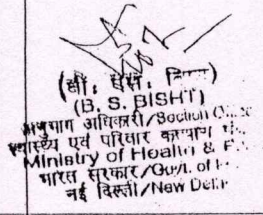 (बी. एस. बिष्ट)
(B. S. BISHT)
अनुभाग अधिकारी/Section
स्वास्थ्य एवं परिवार कल्याण
Ministry of Health & F.
भारत सरकार/Govt. of
नई दिल्ली/New Delhi